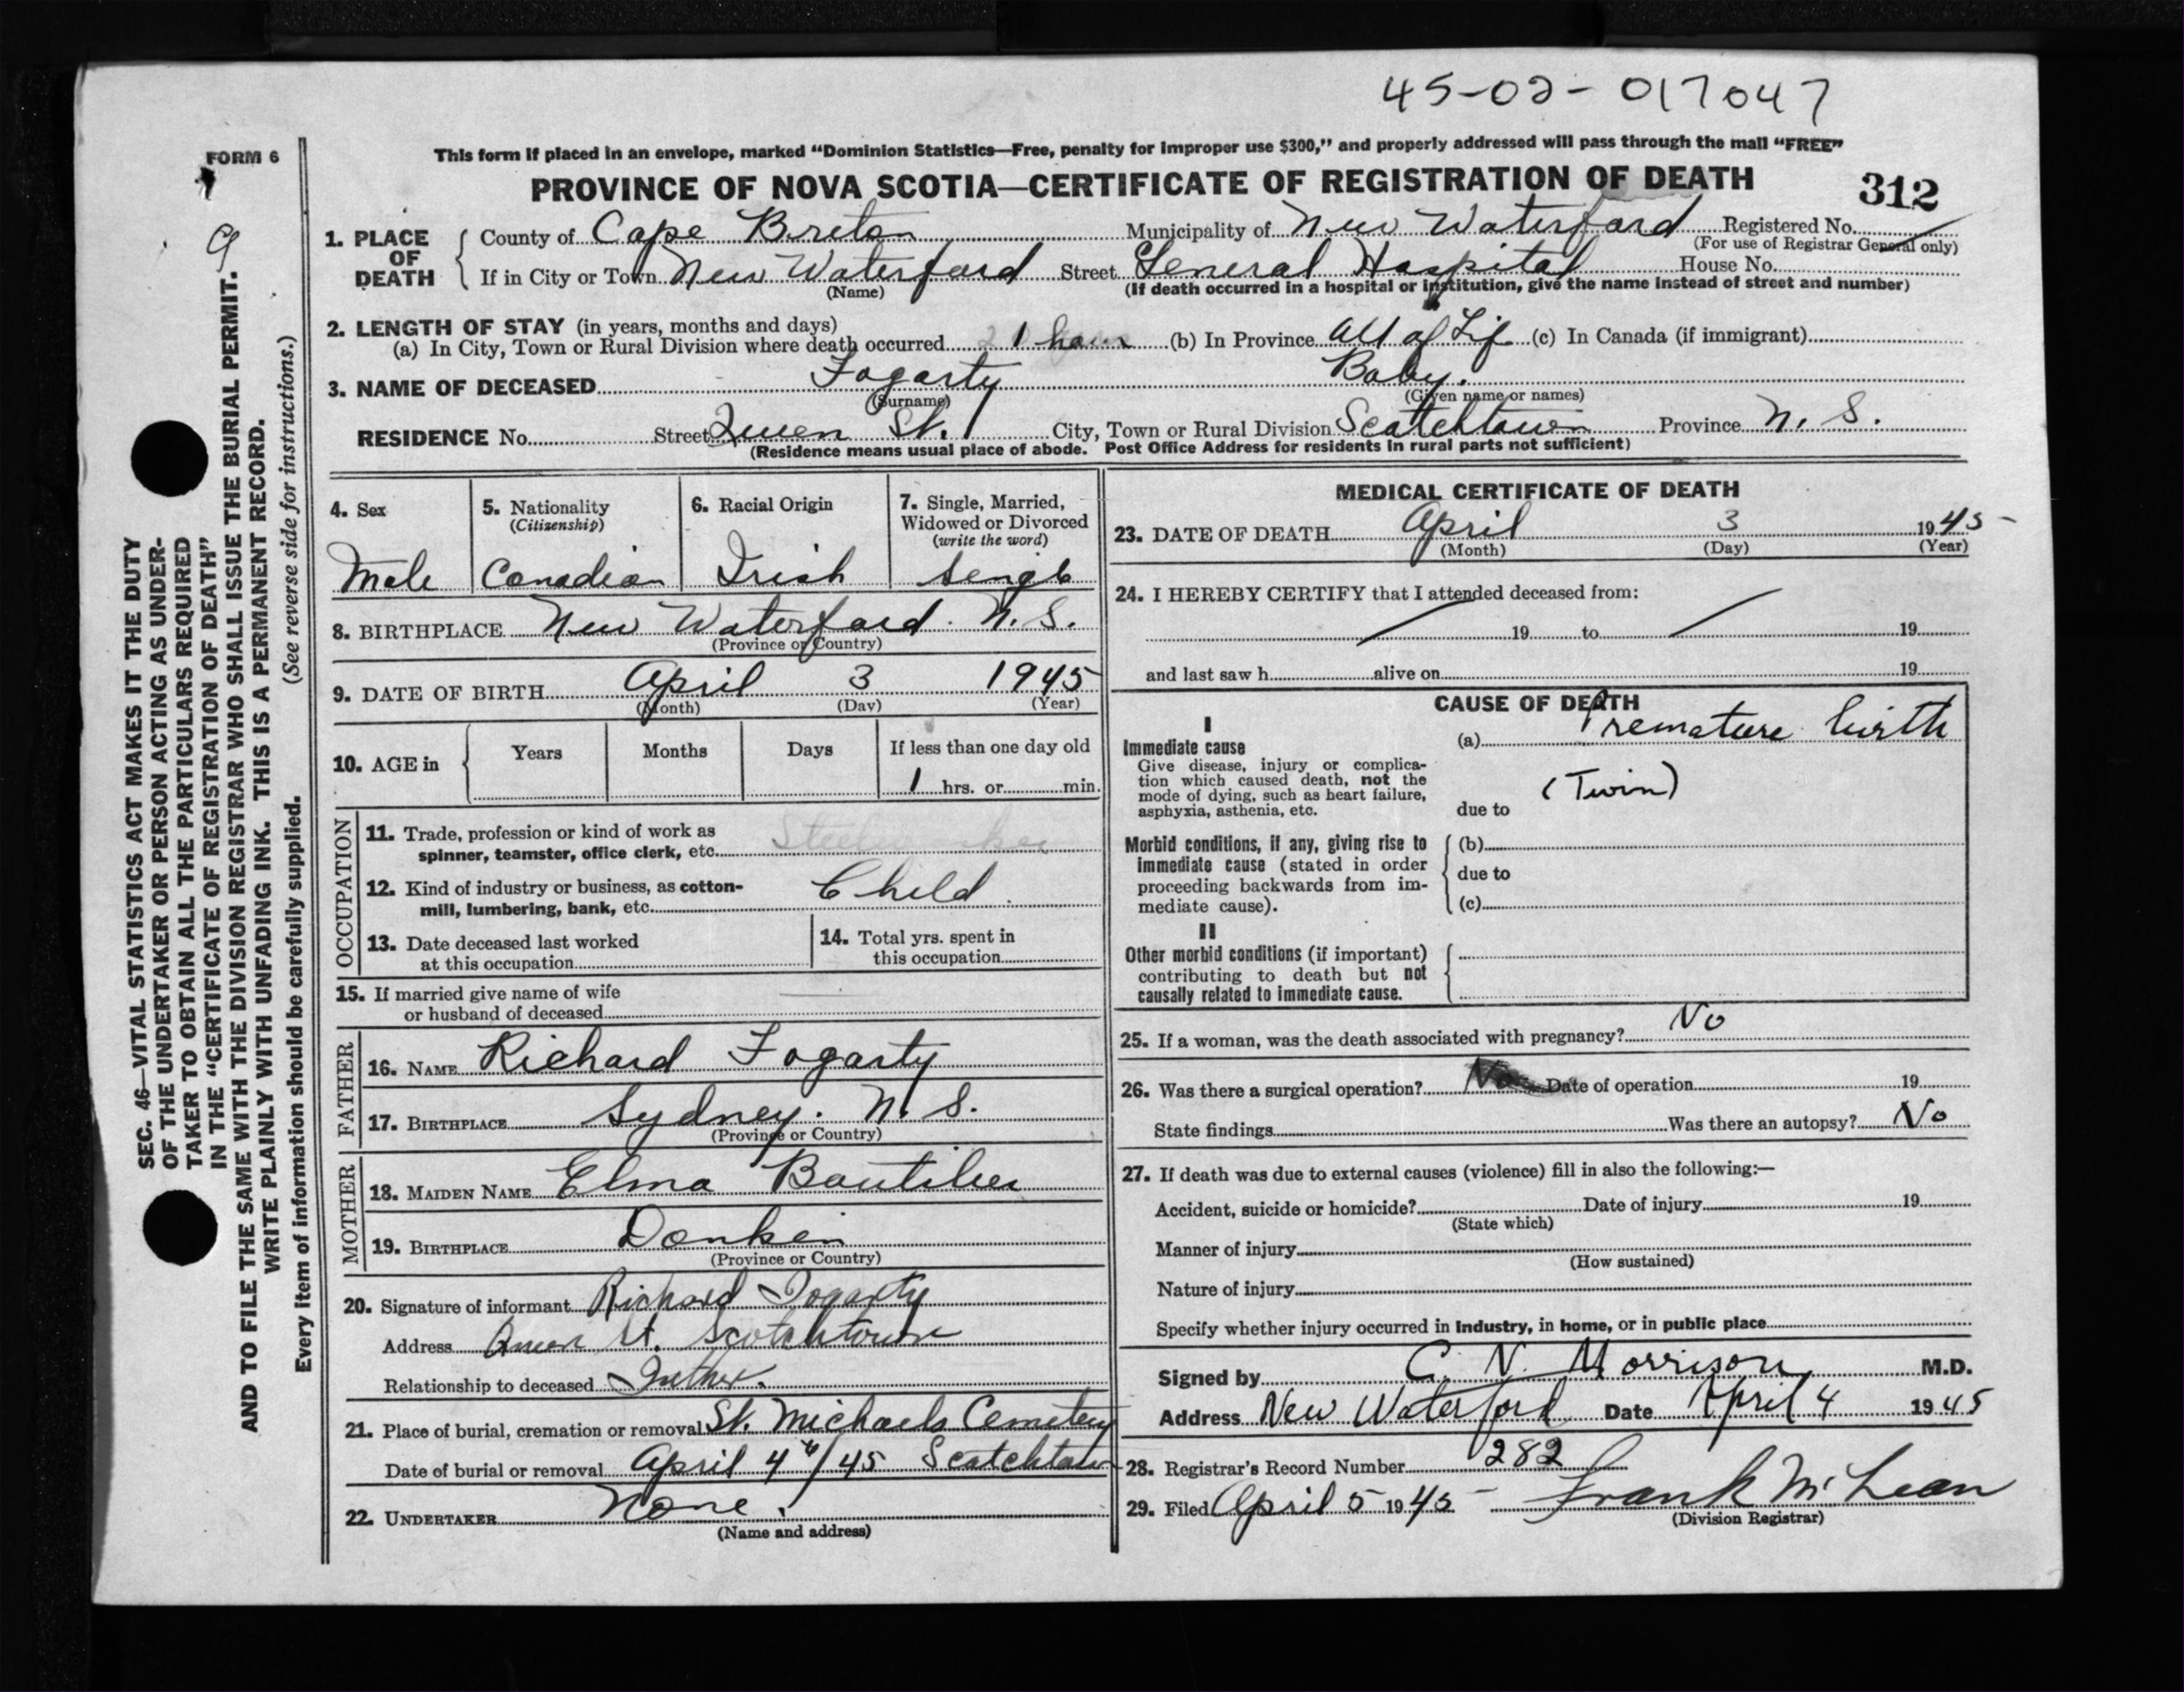 45-02-017047
FORM 6
This form if placed in an envelope, marked "Dominion Statistics—Free, penalty for improper use $300," and properly addressed will pass through the mail "FREE"
PROVINCE OF NOVA SCOTIA—CERTIFICATE OF REGISTRATION OF DEATH
312
9
1. PLACE OF DEATH
County of Cape Breton Municipality of New Waterford Registered No.
(For use of Registrar General only)
If in City or Town New Waterford Street General Hospital House No.
(Name) (If death occurred in a hospital or institution, give the name instead of street and number)
2. LENGTH OF STAY (in years, months and days)
(a) In City, Town or Rural Division where death occurred 1 hour (b) In Province All of Life (c) In Canada (if immigrant)
3. NAME OF DECEASED Fogarty Baby.
(Surname) (Given name or names)
RESIDENCE No. Street Queen St. City, Town or Rural Division Scotchtown Province N. S.
(Residence means usual place of abode. Post Office Address for residents in rural parts not sufficient)
4. Sex
Male
5. Nationality
(Citizenship)
Canadian
6. Racial Origin
Irish
7. Single, Married,
Widowed or Divorced
(write the word)
Single
8. BIRTHPLACE New Waterford. N.S.
(Province or Country)
9. DATE OF BIRTH April 3 1945
(Month) (Day) (Year)
10. AGE in Years Months Days If less than one day old
1 hrs. or min.
OCCUPATION
11. Trade, profession or kind of work as
spinner, teamster, office clerk, etc.
12. Kind of industry or business, as cotton-
mill, lumbering, bank, etc. Child.
13. Date deceased last worked
at this occupation
14. Total yrs. spent in
this occupation
15. If married give name of wife
or husband of deceased
FATHER
16. NAME Richard Fogarty
17. BIRTHPLACE Sydney. N. S.
(Province or Country)
MOTHER
18. MAIDEN NAME Elma Boutilier
19. BIRTHPLACE Donkin
(Province or Country)
20. Signature of informant Richard Fogarty
Address Queen St. Scotchtown
Relationship to deceased Father.
21. Place of burial, cremation or removal St. Michaels Cemetery
Date of burial or removal April 4th/45 Scotchtown
22. UNDERTAKER None.
(Name and address)
MEDICAL CERTIFICATE OF DEATH
23. DATE OF DEATH April 3 1945
(Month) (Day) (Year)
24. I HEREBY CERTIFY that I attended deceased from:
19 to 19
and last saw h alive on 19
CAUSE OF DEATH
I
Immediate cause
Give disease, injury or complica-
tion which caused death, not the
mode of dying, such as heart failure,
asphyxia, asthenia, etc.
(a) Premature birth
(Twin)
due to
Morbid conditions, if any, giving rise to
immediate cause (stated in order
proceeding backwards from im-
mediate cause).
(b)
due to
(c)
II
Other morbid conditions (if important)
contributing to death but not
causally related to immediate cause.
25. If a woman, was the death associated with pregnancy? No
26. Was there a surgical operation? No Date of operation 19
State findings Was there an autopsy? No
27. If death was due to external causes (violence) fill in also the following:—
Accident, suicide or homicide? Date of injury 19
(State which)
Manner of injury
(How sustained)
Nature of injury
Specify whether injury occurred in industry, in home, or in public place
Signed by C. N. Morrison M.D.
Address New Waterford Date April 4 1945
28. Registrar's Record Number 282
29. Filed April 5 1945 Frank McLean
(Division Registrar)
SEC. 46—VITAL STATISTICS ACT MAKES IT THE DUTY
OF THE UNDERTAKER OR PERSON ACTING AS UNDER-
TAKER TO OBTAIN ALL THE PARTICULARS REQUIRED
IN THE "CERTIFICATE OF REGISTRATION OF DEATH"
AND TO FILE THE SAME WITH THE DIVISION REGISTRAR WHO SHALL ISSUE THE BURIAL PERMIT.
WRITE PLAINLY WITH UNFADING INK. THIS IS A PERMANENT RECORD.
Every item of information should be carefully supplied. (See reverse side for instructions.)